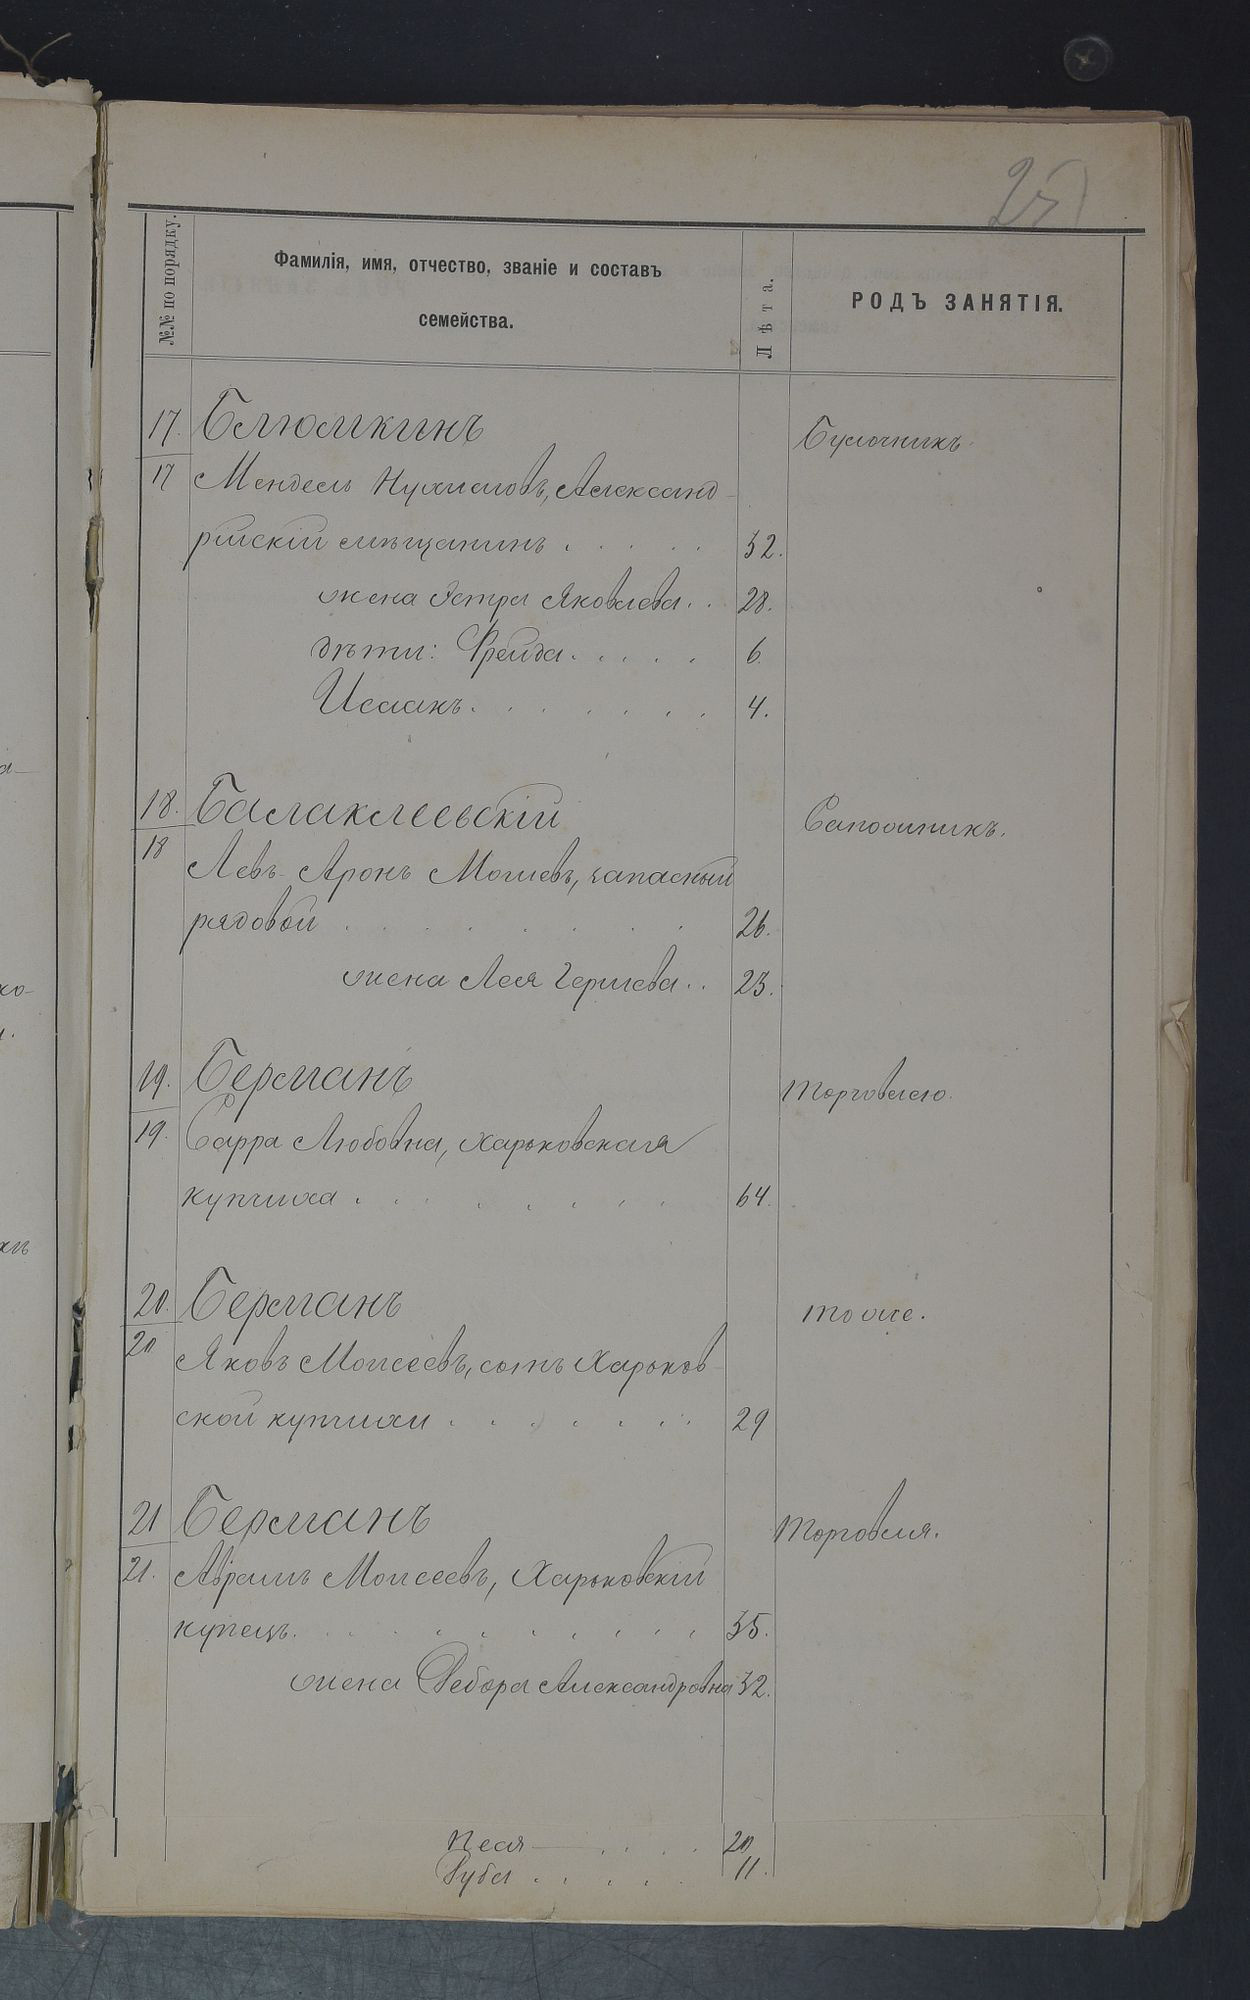 25
№№ по порядку.
Фамилія, имя, отчество, званіе и составъ
семейства.
Лѣта.
РОДЪ ЗАНЯТІЯ.
17. Блюмкинъ
Булочникъ.
17 Мендель Нухимовъ, Александ-
рійскій мѣщанинъ . . . . . 32.
жена Эстра Яковлева . . 28.
дѣти: Фрейда . . . . . 6.
Исаакъ . . . . . . . 4.
18. Балаклеевскій
Сапожникъ.
18
Левъ-Аронъ Мошевъ, запасный
рядовой . . . . . . . 26.
жена Лея Гершева . . 23.
19. Берманъ
Торговлею.
19. Сарра Любовна, Харьковская
купчиха . . . . . . . 64.
20. Берманъ
тоже.
20
Яковъ Моисеевъ, сынъ Харьков-
ской купчихи . . . . . . . 29
21 Берманъ
Торговля.
21. Абрамъ Моисеевъ, Харьковскій
купецъ . . . . . . . . . . 35.
жена Дебора Александровна 32.
Песя . . . . 20
Буба . . . . . 11.